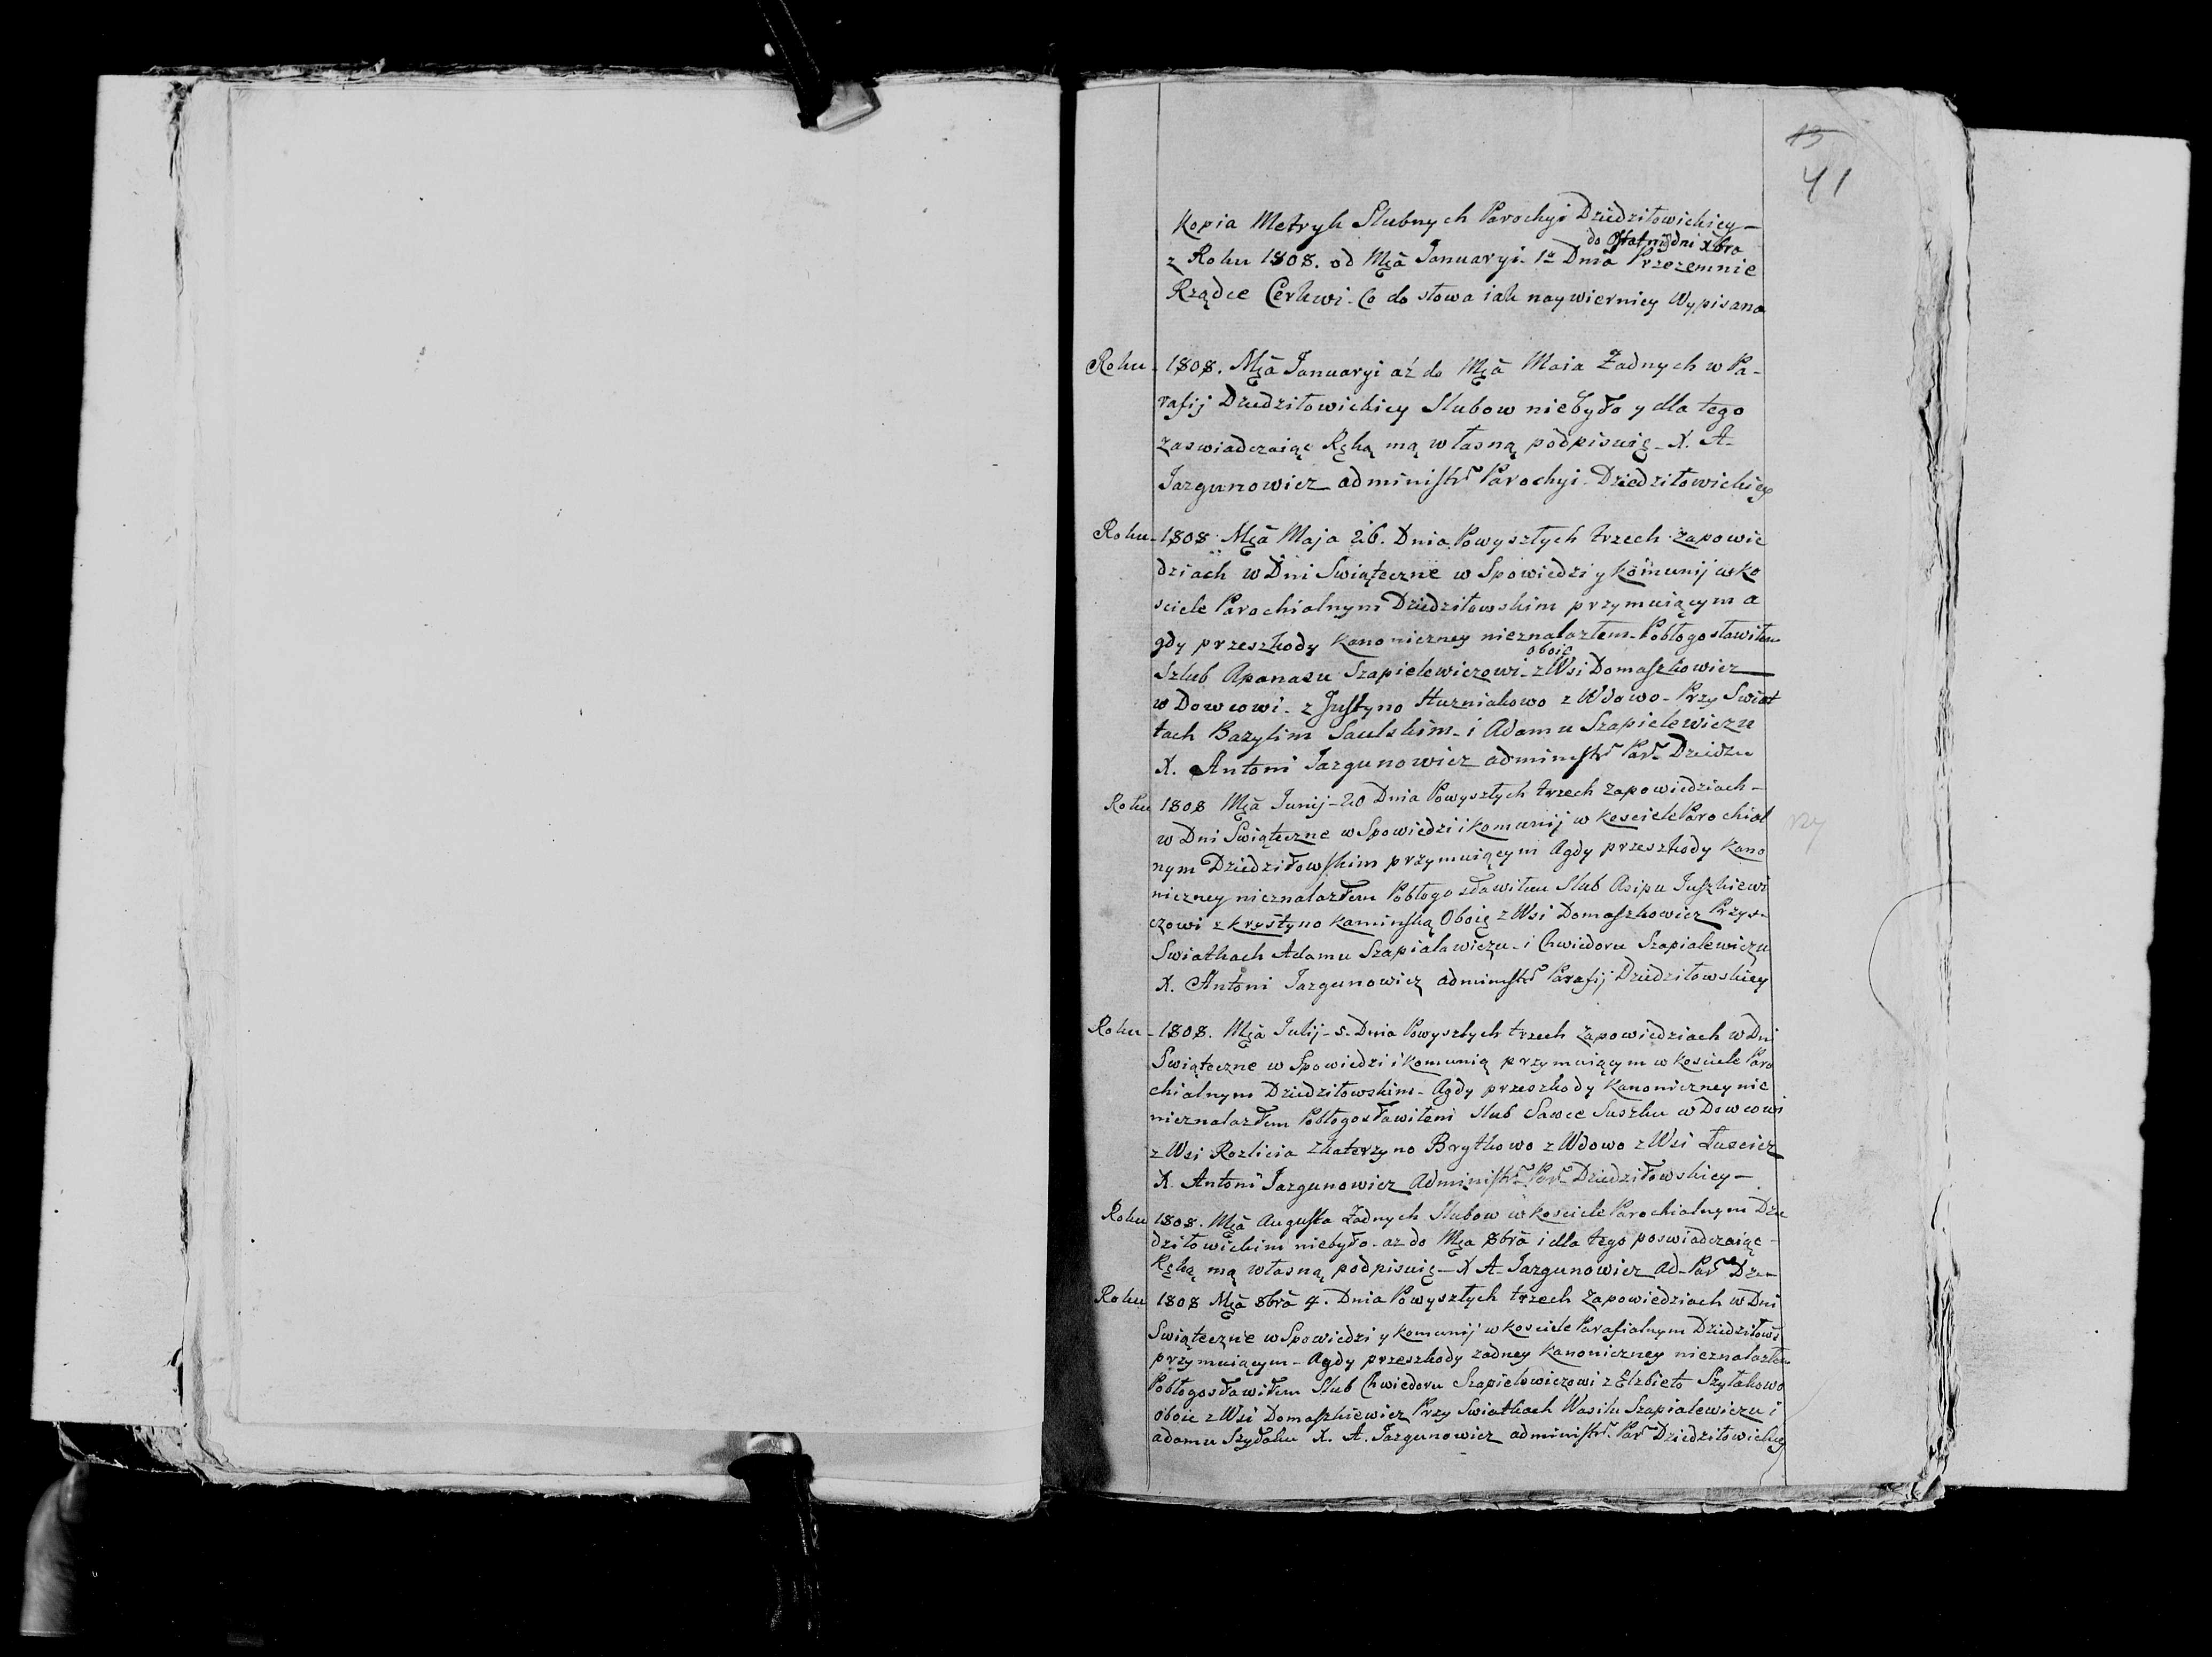 15
41
Kopia Metryk Slubnych Parochyi Dziedziłowickiey –
do Ostatnij dni Xbra
z Roku 1808. od Mca Januaryi 1º Dnia Przezemnie
Rządce Cerkwi. Co do słowa iak naywierniey Wypisana
Roku - 1808. Mca Januaryi aż do Mca Maia Żadnych w Pa-
rafij Dziedziłowickiey Slubow niebyło y dla tego
zaswiadczaiąc Ręką mą własną podpisuię - X. A-
Jazgunowicz administr Parochyi Dziedziłowickiey
Roku - 1808 Mca Maja 26. Dnia Powyszłych trzech zapowie
dziach w Dni Swiąteczne w Spowiedzi y komunij w ko
sciele Parochialnym Dziedziłowskim przymuiącym a
gdy przeszkody kanoniczney nieznalazłem - Pobłogosławiłem
oboie
Szlub Apanasu Szapielewiczowi - z Wsi Domaszkowicz
w Dowcowi - z Justyno Huzniakowo z Wdowo - Przy Swiat
kach Bazylim Saulskim - i Adamu Szapielewiczu
X. Antoni Jazgunowicz administr Par Dziedzu
Roku 1808 Mca Junij - 20 Dnia Powyszłych trzech zapowiedziach -
w Dni Swiąteczne w Spowiedzi i komunij w kosciele Parochial
nym Dziedziłowskim przymuiącym Agdy przeszkody kano
niczney nieznalazłem Pobłogosławiłem Slub Asipu Juszkiewi
czowi z krystyno kaminską Oboię z Wsi Domaszkowicz Przy
Swiatkach Adamu Szapialawiczu - i Chwiedoru Szapialewiczu
X. Antoni Jazgunowicz administr Parafij Dziedziłowskiey
Roku - 1808. Mca Julij - 5. Dnia Powyszłych trzech zapowiedziach w Dni
Swiąteczne w Spowiedzi i komunią przymuiącym w kosciele Paro
chialnym Dziedziłowskim - Agdy przeszkody kanoniczney nie
nieznalazłem Pobłogosławiłem Slub Sawce Suszku w Dowcowi
z Wsi Rozlicia z katerzyno Brytkowo z Wdowo z Wsi Łuscicz
X. Antoni Jazgunowicz Administr Par Dziedziłowskiey -
Roku 1808. Mca Augusta Żadnych Slubow w kosciele Parochialnym Dzie
dziłowickim niebyło - az do Mca 8bra i dla tego poswiadczaiąc -
Ręką mą własną podpisuię - X A - Jazgunowicz ad - Par Dze
Roku 1808 Mca 8bra 4. Dnia Powyszłych trzech zapowiedziach w Dni
Swiąteczne w Spowiedzi y komunij w kosciele Parafialnym Dziedziłows
przymuiącym - Agdy przeszkody zadney kanoniczney nieznalazłem
Pobłogosławiłem Slub Chwiedoru Szapielowiczowi z Elzbieto Szyłakowo
oboie z Wsi Domaszkiewicz Przy Swiatkach Wasilu Szapialewiczu i
adamu Szydaku X. A. Jazgunowicz administr Par Dziedziłowickiey